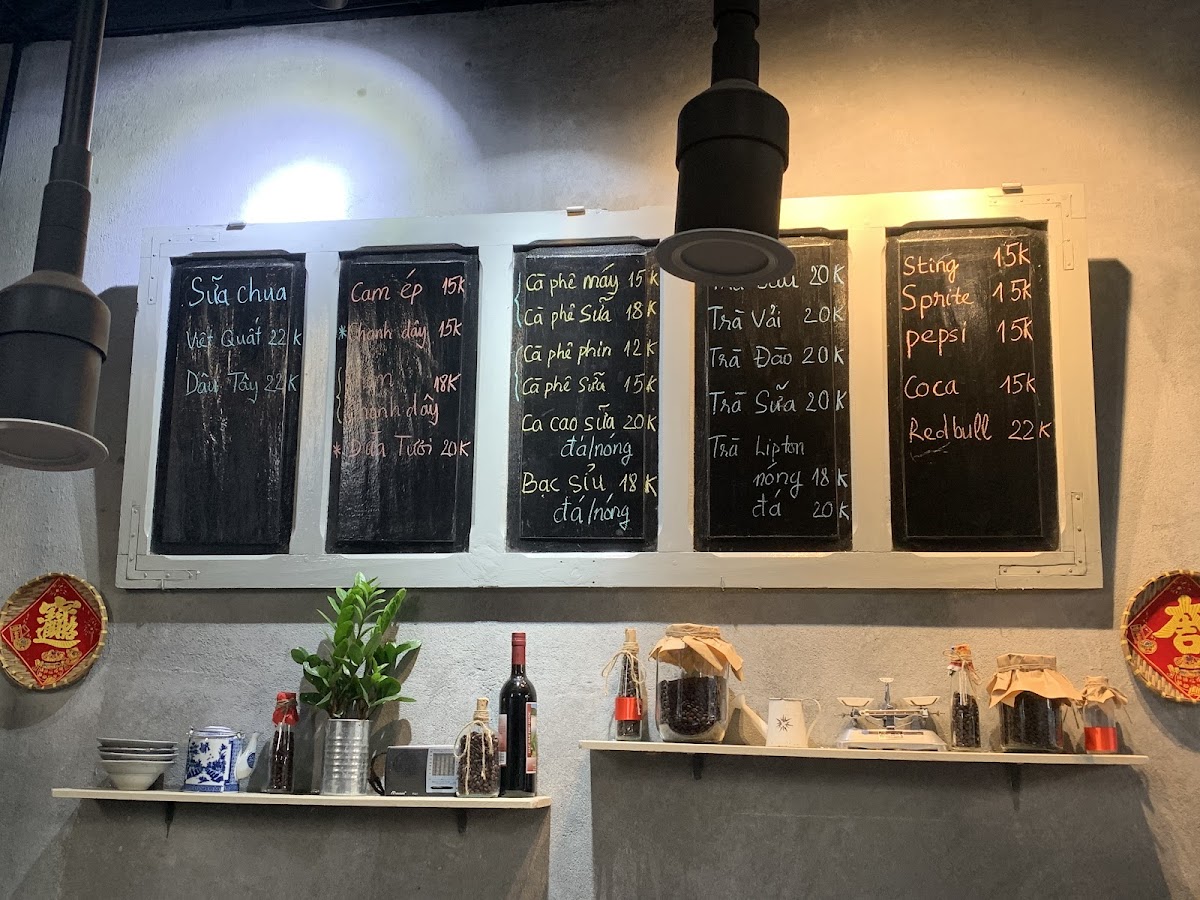 Sữa chua
Việt Quất 22K
Dâu Tây 22K
Cam ép 15K
*Chanh dây 15K
Cam 18K
Chanh dây
*Dừa Tươi 20K
Cà phê máy 15K
Cà phê Sữa 18K
Cà phê phin 12K
Cà phê Sữa 15K
Ca cao sữa 20K
đá/nóng
Bạc sỉu 18K
đá/nóng
Trà 20K
Trà Vải 20K
Trà Đào 20K
Trà Sữa 20K
Trà Lipton
nóng 18K
đá 20K
Sting 15K
Sprite 15K
pepsi 15K
Coca 15K
Redbull 22K